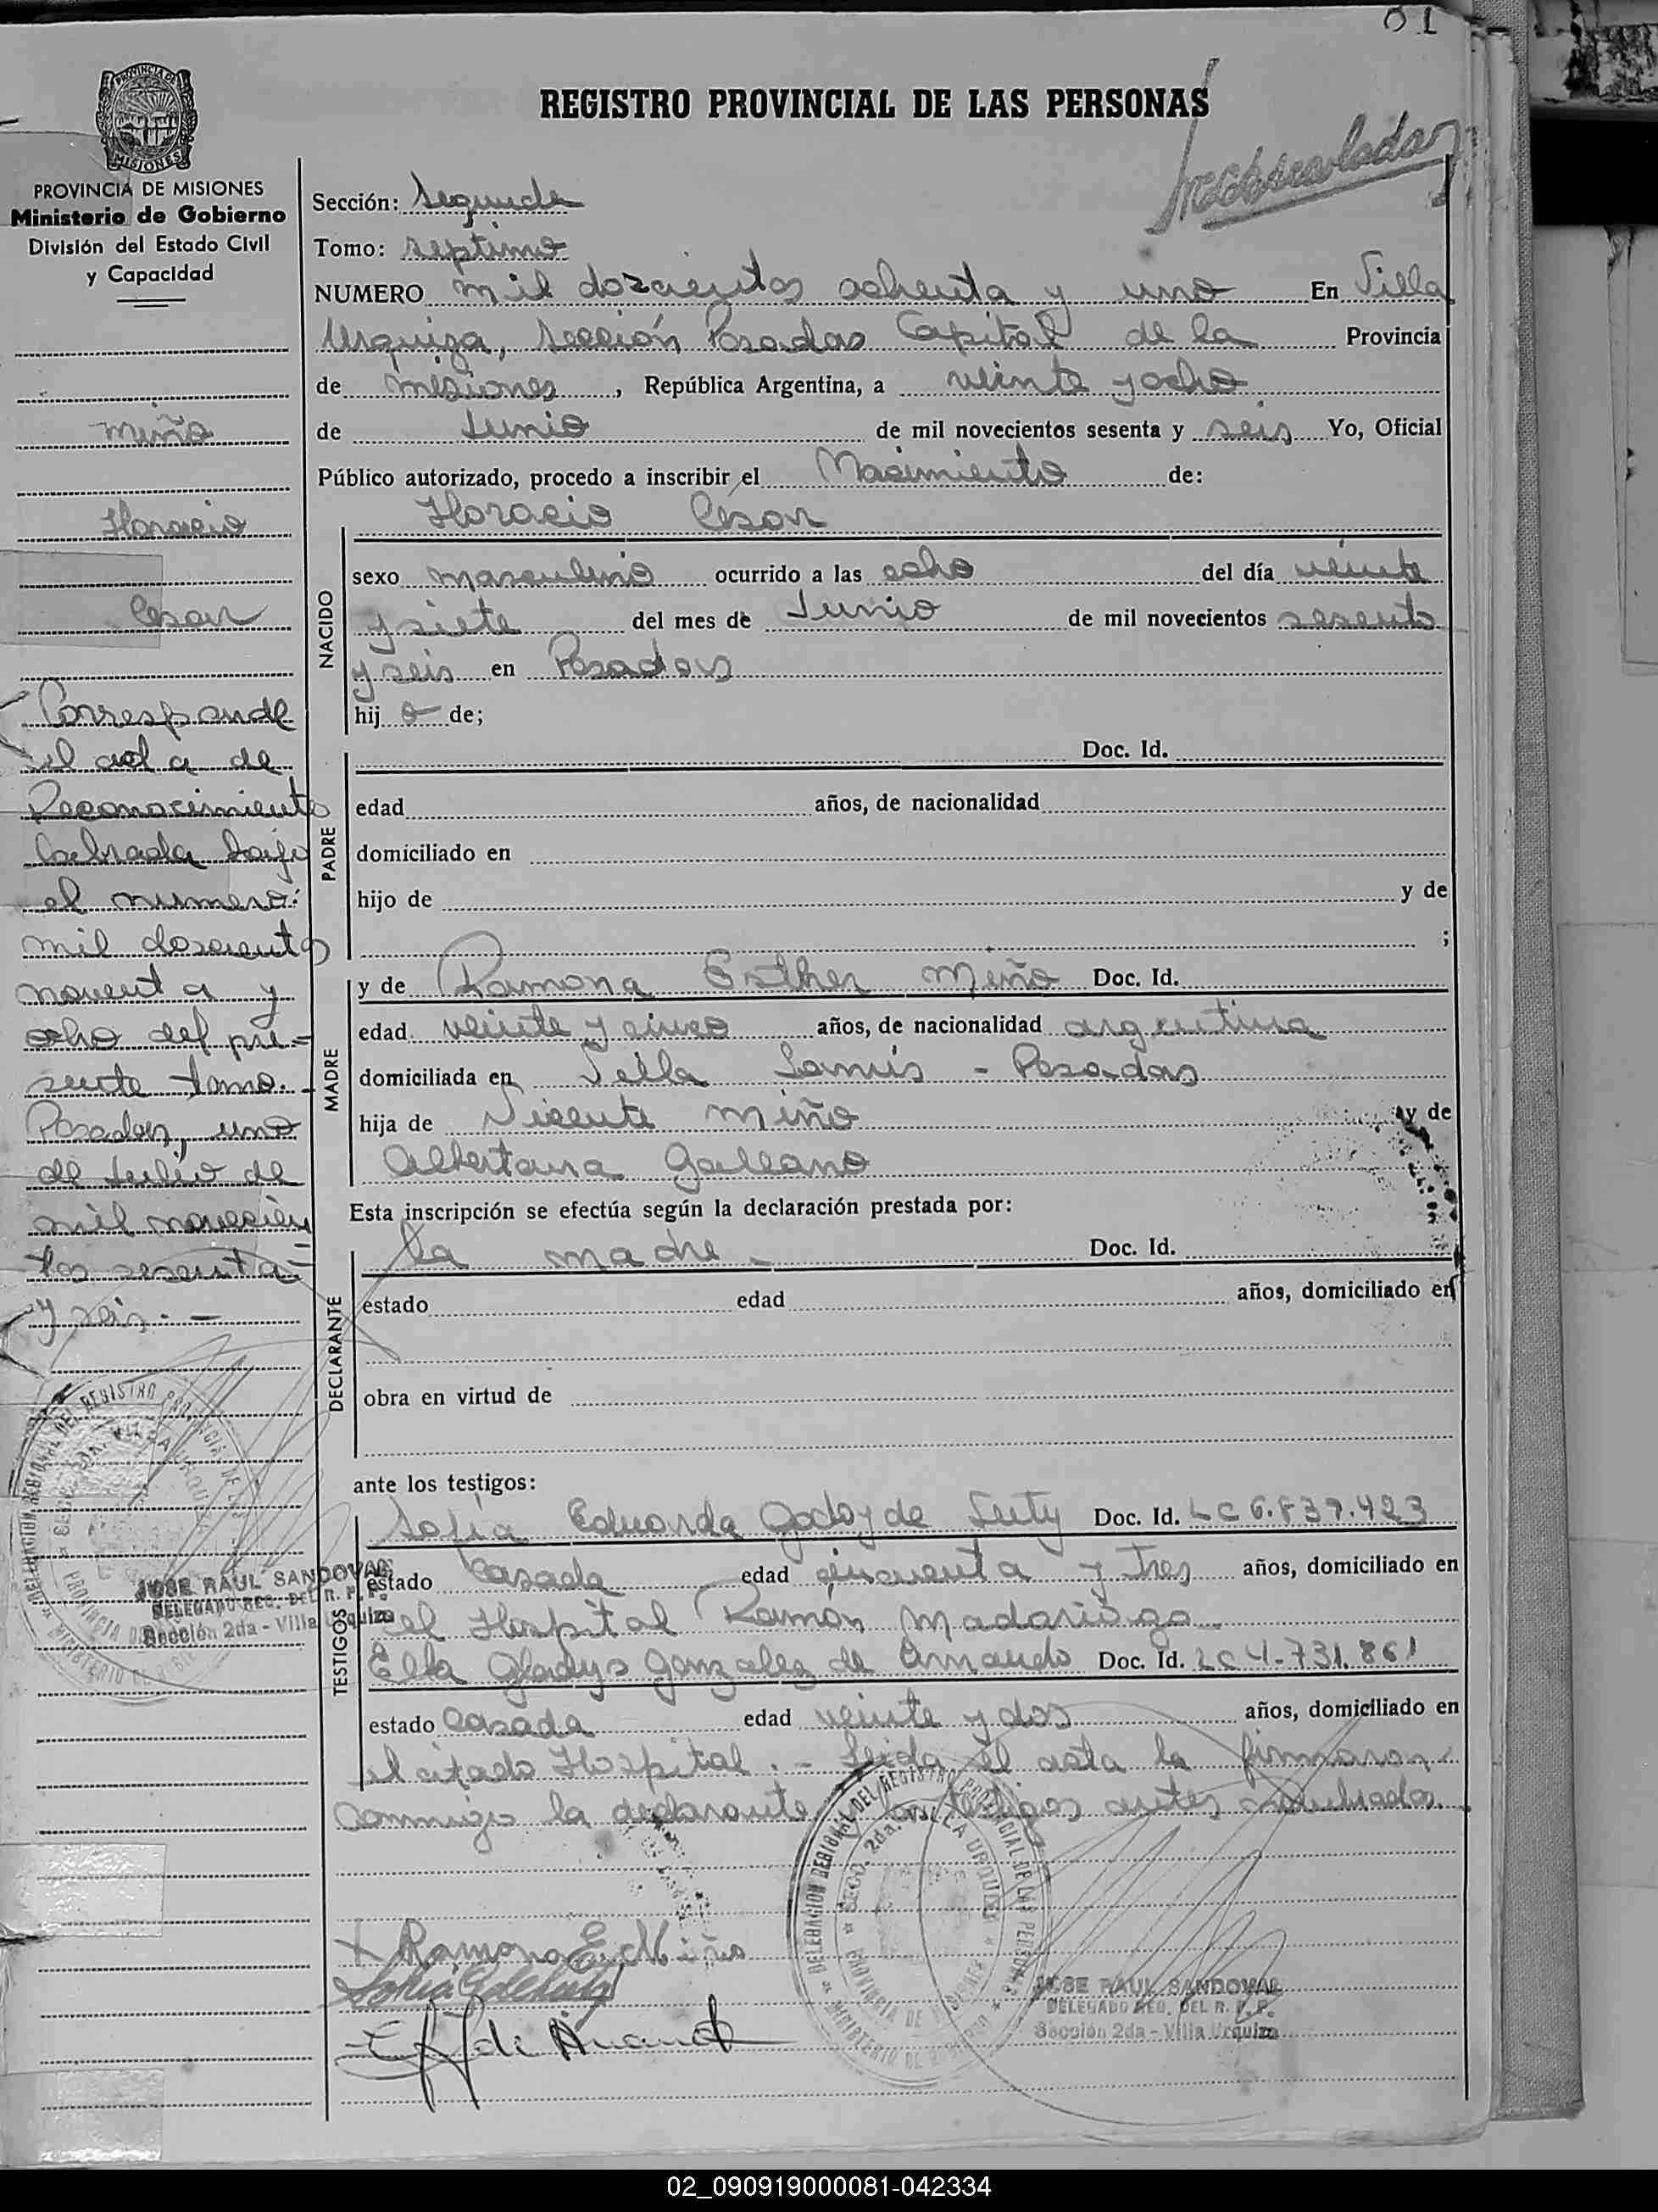 01
REGISTRO PROVINCIAL DE LAS PERSONAS
PROVINCIA DE MISIONES
MISIONES
PROVINCIA DE MISIONES
Ministerio de Gobierno
División del Estado Civil
y Capacidad
Miño
Horacio
Cesar
Corresponde
el acta de
Reconocimiento
labrada bajo
el numero:
mil doscientos
noventa y
ocho del pre=
sente tomo.-
Posadas, uno
de Julio de
mil novecien
tos sesenta
y seis.-
JOSE RAUL SANDOVAL
DELEGADO REG. DEL R. P. P.
Sección 2da - Villa Urquiza
Sección: Segunda
Tomo: septimo
NUMERO mil doscientos ochenta y uno En Villa
Urquiza, Sección Posadas Capital de la Provincia
de Misiones, República Argentina, a veinte y ocho
de Junio de mil novecientos sesenta y seis Yo, Oficial
Público autorizado, procedo a inscribir el Nacimiento de:
Horacio Cesar
NACIDO
sexo masculino ocurrido a las ocho del día veinte
y siete del mes de Junio de mil novecientos sesenta
y seis en Posadas
hij o de;
PADRE
Doc. Id.
edad años, de nacionalidad
domiciliado en
hijo de y de
;
MADRE
y de Ramona Esther Miño Doc. Id.
edad veinte y cinco años, de nacionalidad argentina
domiciliada en Villa Lanús - Posadas
hija de Vicente Miño y de
Albertana Galeano
Esta inscripción se efectúa según la declaración prestada por:
DECLARANTE
la madre - Doc. Id.
estado edad años, domiciliado en
obra en virtud de
ante los testigos:
TESTIGOS
Sofia Eduarda Godoy de Doc. Id. LC 6.837.423
estado Casada edad cincuenta y tres años, domiciliado en
el Hospital Ramón Madariaga
Elba Gladys Gonzalez de Doc. Id. LC 4-731.861
estado Casada edad veinte y dos años, domiciliado en
el citado Hospital.- Leida el acta la firmaron
conmigo la declarante y los testigos antes nombrados.
Ramona E. Miño
DELEGACION REGIONAL DEL REGISTRO PROVINCIAL DE LAS PERSONAS
SECC. 2da. VILLA URQUIZA
PROVINCIA DE MISIONES
MINISTERIO DE GOBIERNO
JOSE RAUL SANDOVAL
DELEGADO REG. DEL R. P. P.
Sección 2da - Villa Urquiza
02_090919000081-042334